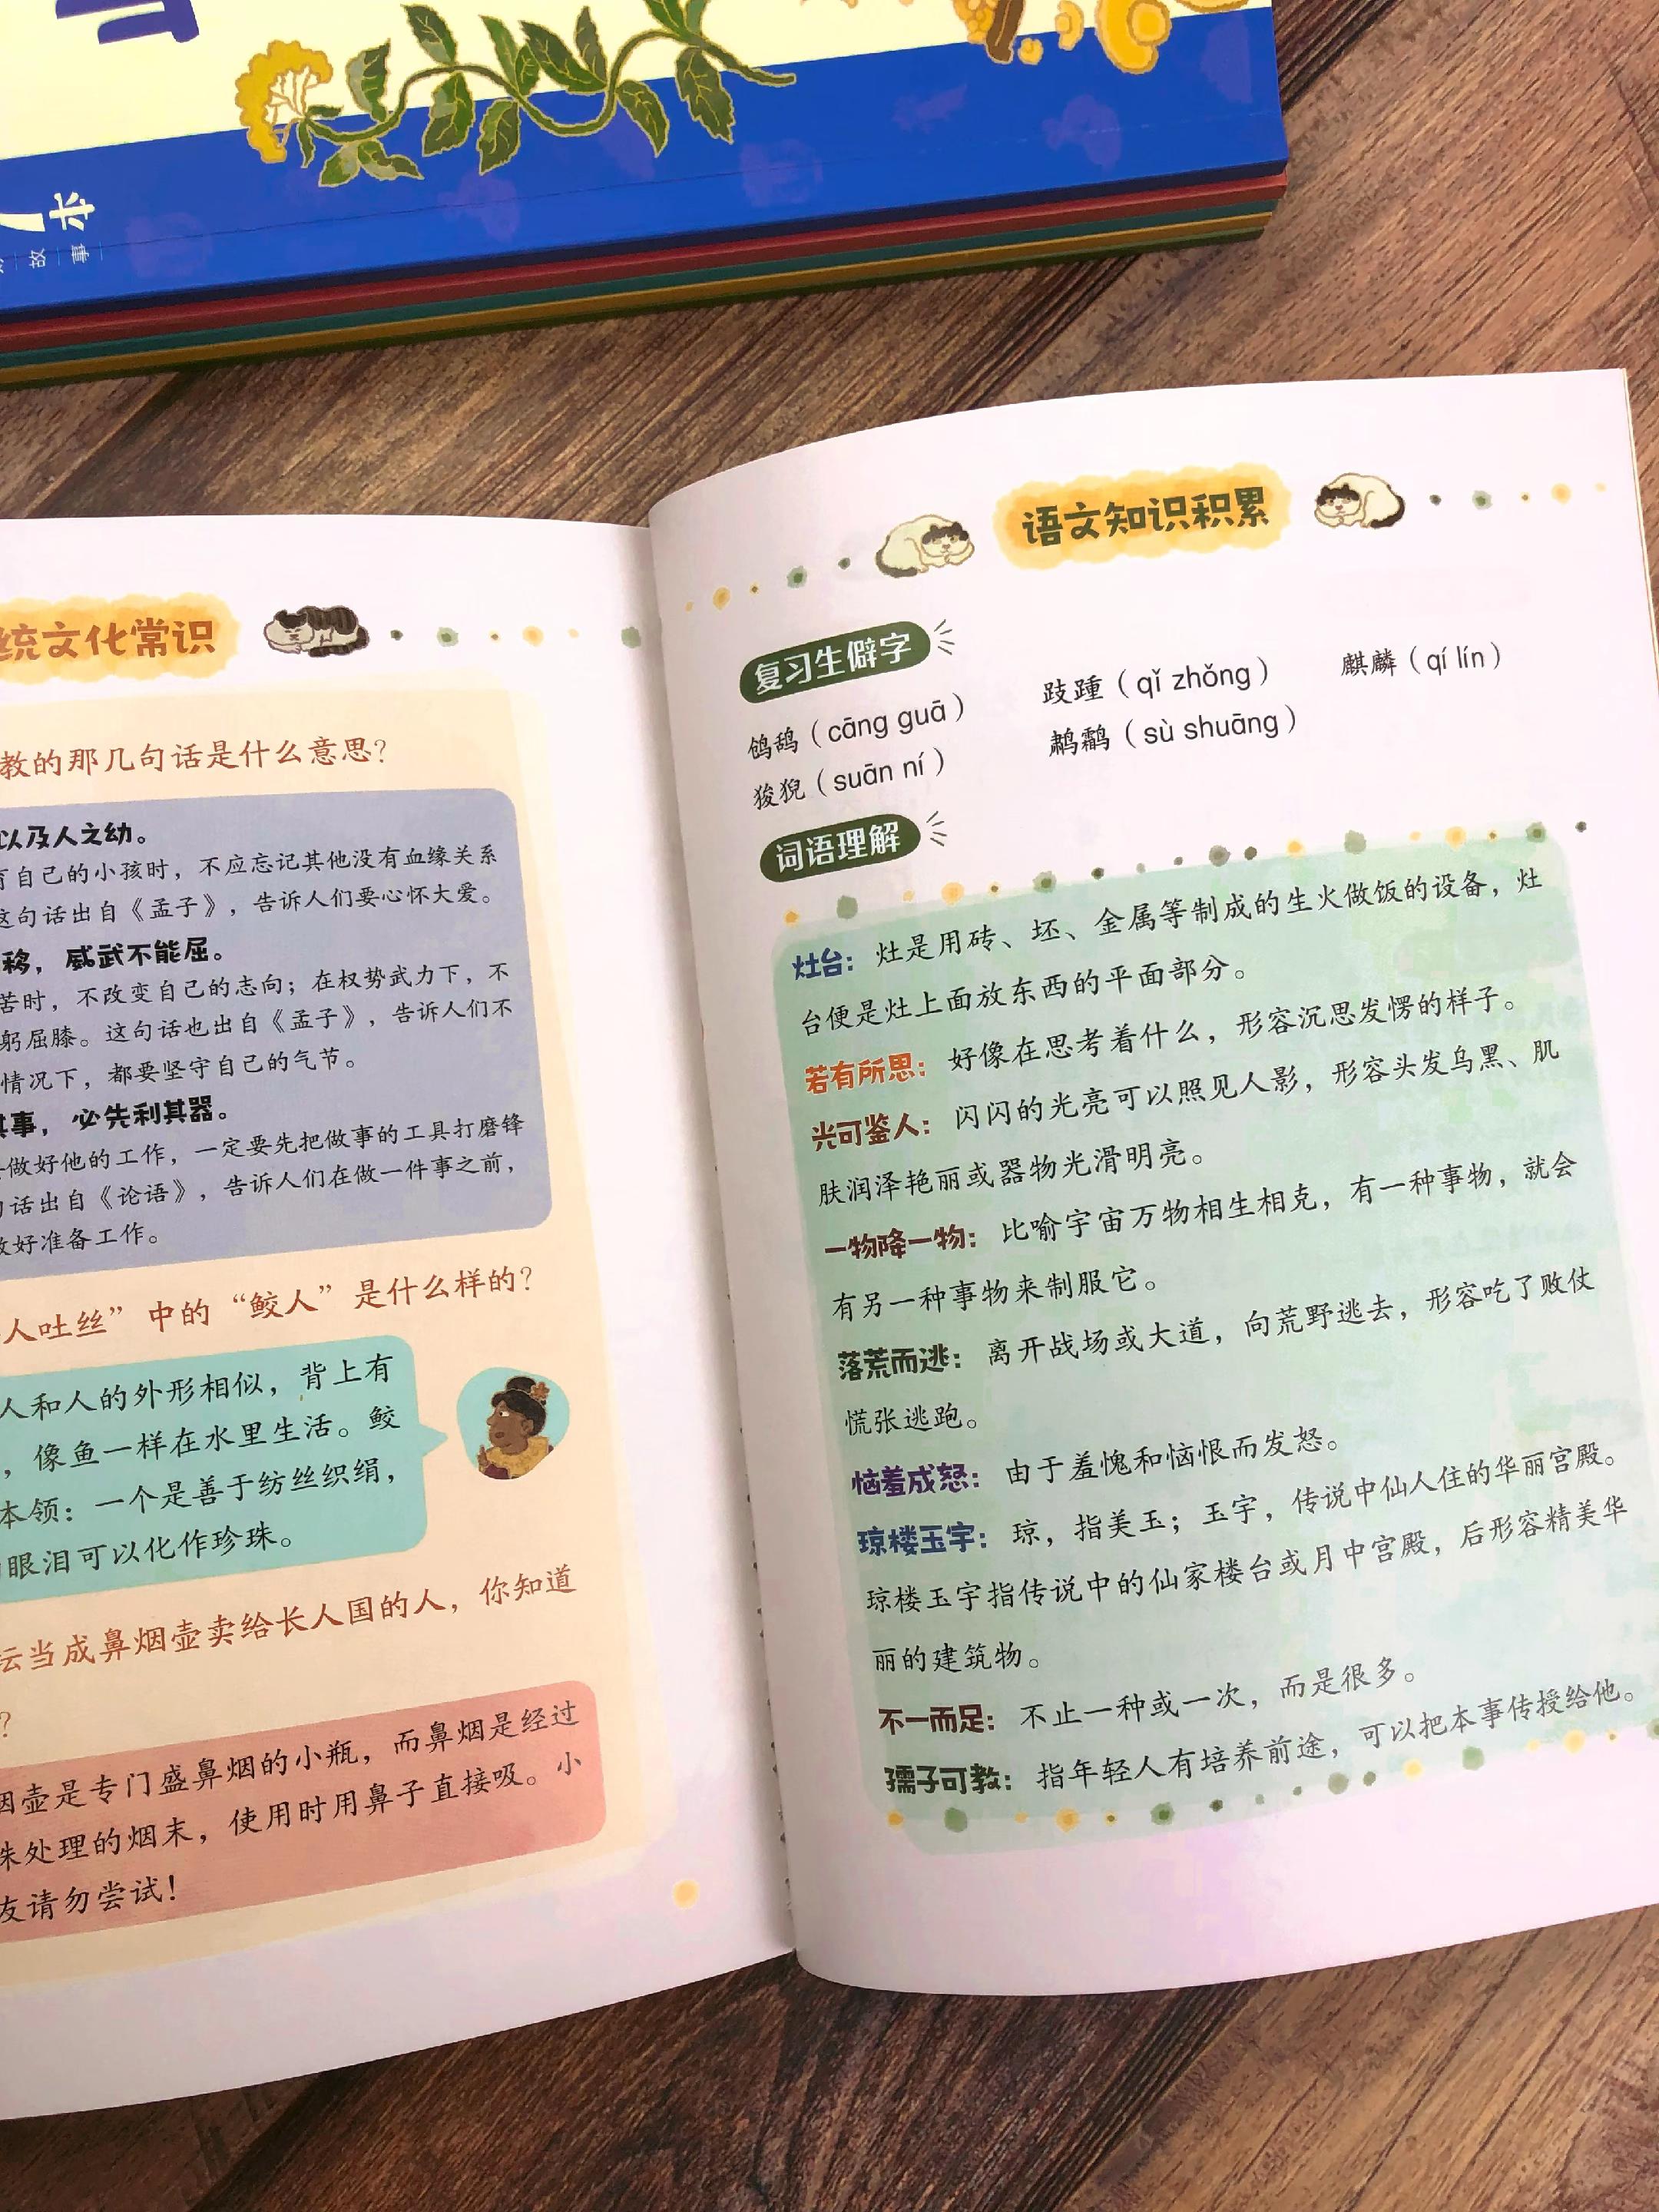 本
故事
统文化常识
教的那几句话是什么意思？
以及人之幼。
育自己的小孩时，不应忘记其他没有血缘关系
这句话出自《孟子》，告诉人们要心怀大爱。
移，威武不能屈。
苦时，不改变自己的志向；在权势武力下，不
躬屈膝。这句话也出自《孟子》，告诉人们不
情况下，都要坚守自己的气节。
其事，必先利其器。
做好他的工作，一定要先把做事的工具打磨锋
句话出自《论语》，告诉人们在做一件事之前，
做好准备工作。
人吐丝”中的“鲛人”是什么样的？
人和人的外形相似，背上有
，像鱼一样在水里生活。鲛
本领：一个是善于纺丝织绢，
眼泪可以化作珍珠。
坛当成鼻烟壶卖给长人国的人，你知道
？
烟壶是专门盛鼻烟的小瓶，而鼻烟是经过
殊处理的烟末，使用时用鼻子直接吸。小
友请勿尝试！
语文知识积累
复习生僻字
鸧鸹（cāng guā） 跂踵（qǐ zhǒng） 麒麟（qí lín）
狻猊（suān ní） 鹔鹴（sù shuāng）
词语理解
灶台：灶是用砖、坯、金属等制成的生火做饭的设备，灶
台便是灶上面放东西的平面部分。
若有所思：好像在思考着什么，形容沉思发愣的样子。
光可鉴人：闪闪的光亮可以照见人影，形容头发乌黑、肌
肤润泽艳丽或器物光滑明亮。
一物降一物：比喻宇宙万物相生相克，有一种事物，就会
有另一种事物来制服它。
落荒而逃：离开战场或大道，向荒野逃去，形容吃了败仗
慌张逃跑。
恼羞成怒：由于羞愧和恼恨而发怒。
琼楼玉宇：琼，指美玉；玉宇，传说中仙人住的华丽宫殿。
琼楼玉宇指传说中的仙家楼台或月中宫殿，后形容精美华
丽的建筑物。
不一而足：不止一种或一次，而是很多。
孺子可教：指年轻人有培养前途，可以把本事传授给他。